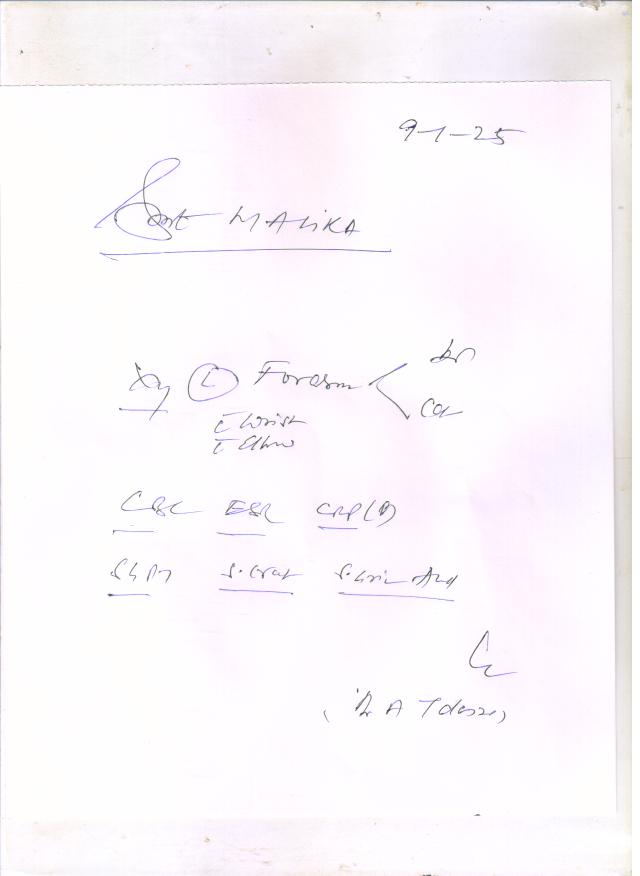 9-1-25
Smt MALIKA
Xray (L) Forearm < AP
Lat
c̄ Wrist
c̄ Elbow
CBC ESR CRP(Q)
S. Creat S. Uric Acid
(Dr A